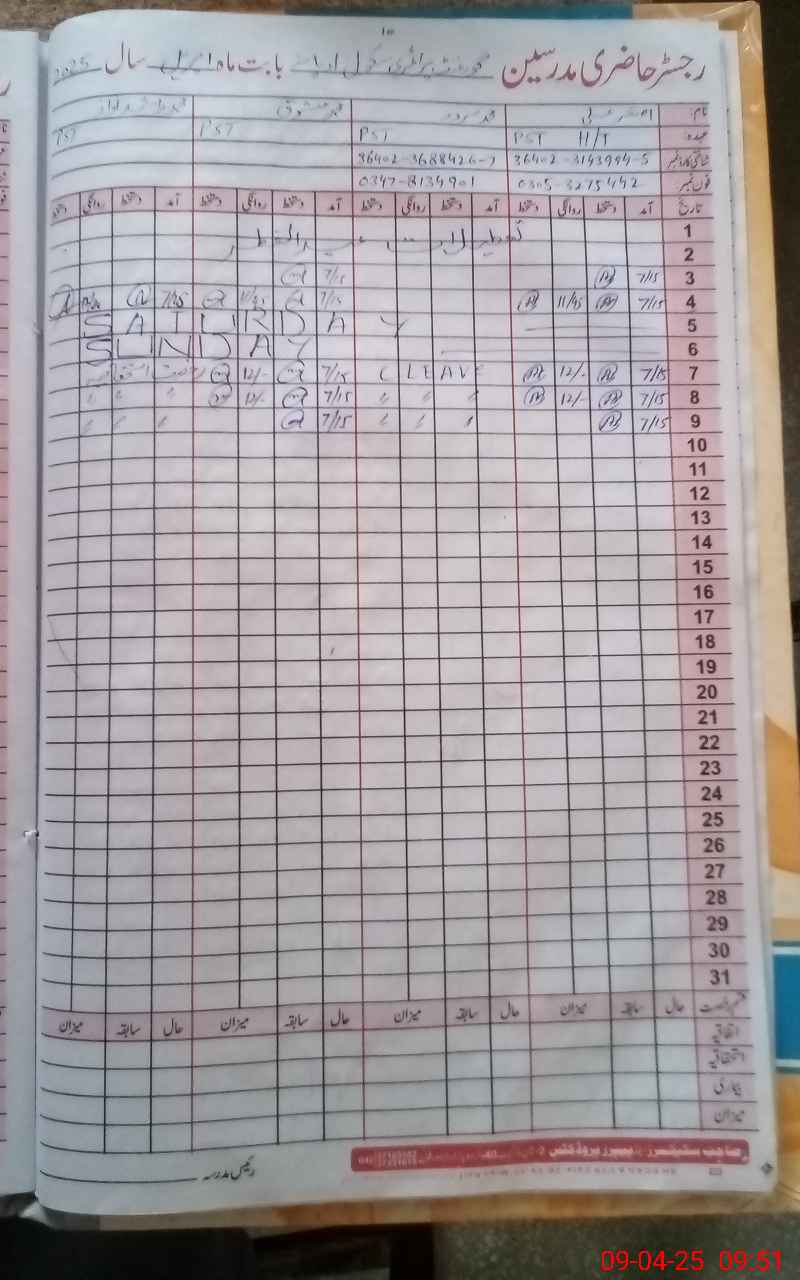 ۱۰
رجسٹر حاضری مدرسین گورنمنٹ پرائمری سکول بابت ماہ اپریل سال 2025
نام:
عہدہ PST H/T PST PST PST
شناختی کارڈ نمبر 36402-3143994-5 36402-3688426-7
فون نمبر 0305-3275442 0347-8134901
تاریخ آمد دستخط روانگی دستخط آمد دستخط روانگی دستخط آمد دستخط روانگی دستخط آمد دستخط روانگی دستخط
1 تعطیلات عید الفطر
2
3 7/15 7/15
4 7/15 11/45 7/15 11/45 7/45
5 SATURDAY
6 SUNDAY
7 7/15 12/- C LEAVE 7/15 12/- رخصت
8 7/15 12/- 〃 〃 〃 7/15 12/- 〃 〃 〃
9 7/15 〃 〃 〃 7/15 〃 〃 〃
10
11
12
13
14
15
16
17
18
19
20
21
22
23
24
25
26
27
28
29
30
31
قسم رخصت حال سابقہ میزان حال سابقہ میزان حال سابقہ میزان حال سابقہ میزان
اتفاقیہ
استحقاقیہ
بیماری
میزان
رئیس مدرسہ
09-04-25 09:51